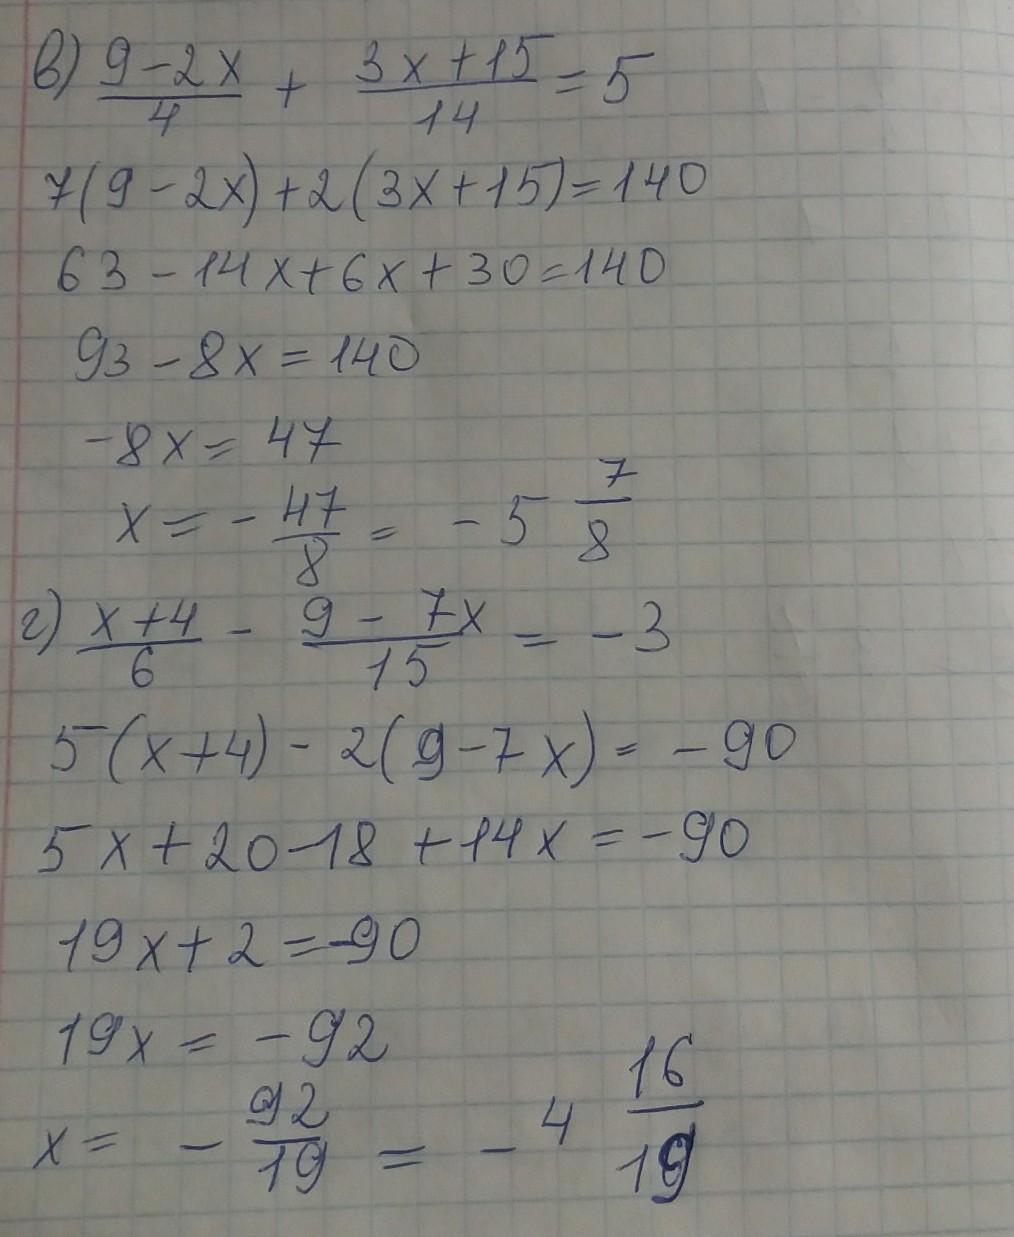 в) (9-2x)/4 + (3x+15)/14 = 5
7(9-2x)+2(3x+15)=140
63-14x+6x+30=140
93-8x=140
-8x=47
x=-47/8=-5 7/8
г) (x+4)/6 - (9-7x)/15 = -3
5(x+4)-2(9-7x)=-90
5x+20-18+14x=-90
19x+2=-90
19x=-92
x=-92/19=-4 16/19